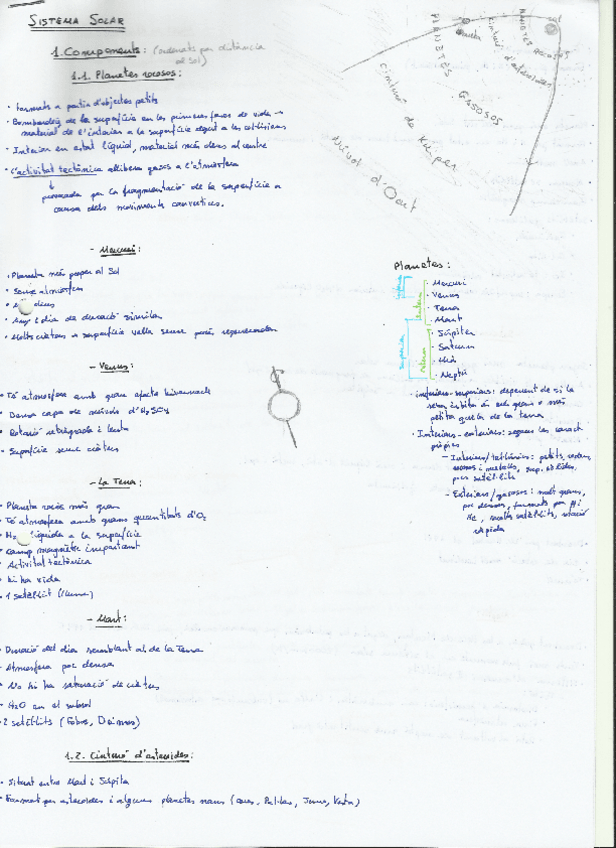 SISTEMA SOLAR
1. Components: (ordenats per distància
al Sol)
1.1. Planetes rocosos:
• Formats a partir d'objectes petits
• Bombardeig de la superfície en les primeres fases de vida →
material de l'interior a la superfície degut a les col·lisions
• Interior en estat líquid, material més dens al centre
• L'activitat tectònica allibera gasos a l'atmosfera
↓
provocada per la fragmentació de la superfície a
causa dels moviments convectius.
- Mercuri:
• Planeta més proper al Sol
• Sense atmosfera
• dens
• Any i dia de duració similar
• Molts cràters → superfície vella sense regenerar
- Venus:
• Té atmosfera amb gran efecte hivernacle
• Densa capa de núvols d'H₂SO₄
• Rotació retrògrada i lenta
• Superfície sense cràters
- La Terra:
• Planeta rocós més gran
• Té atmosfera amb grans quantitats d'O₂
• H₂ líquida a la superfície
• Camp magnètic important
• Activitat tectònica
• hi ha vida
• 1 satèl·lit (lluna)
- Mart:
• Duració del dia semblant al de la Terra
• Atmosfera poc densa
• No hi ha saturació de cràters
• H₂O en el subsòl
• 2 satèl·lits (Fobos, Deimos)
1.2. Cinturó d'asteroides:
• Situat entre Mart i Júpiter
• Format per asteroides i alguns planetes nans (Ceres, Pal·las, Juno, Vesta)
PLANETES GASOSOS
PLANETES ROCOSOS
sol
cinturó d'asteroides
cinturó de Kuiper
Núvol d'Oort
Planetes:
• Mercuri
• Venus
• Terra
• Mart
• Júpiter
• Saturn
• Urà
• Neptú
inferiors
superiors
interiors
exteriors
• inferiors-superiors: depenent de si la
seva òrbita és més gran o més
petita que la de la terra
• Interiors-exteriors: segons les caract
pròpies
- Interiors/tel·lúrics: petits, densos,
rocosos i metàl·lics, sup. sòlides,
pocs satèl·lits
- Exteriors/gasosos: molt grans,
poc densos, formats per H i
He, molts satèl·lits, rotació
ràpida